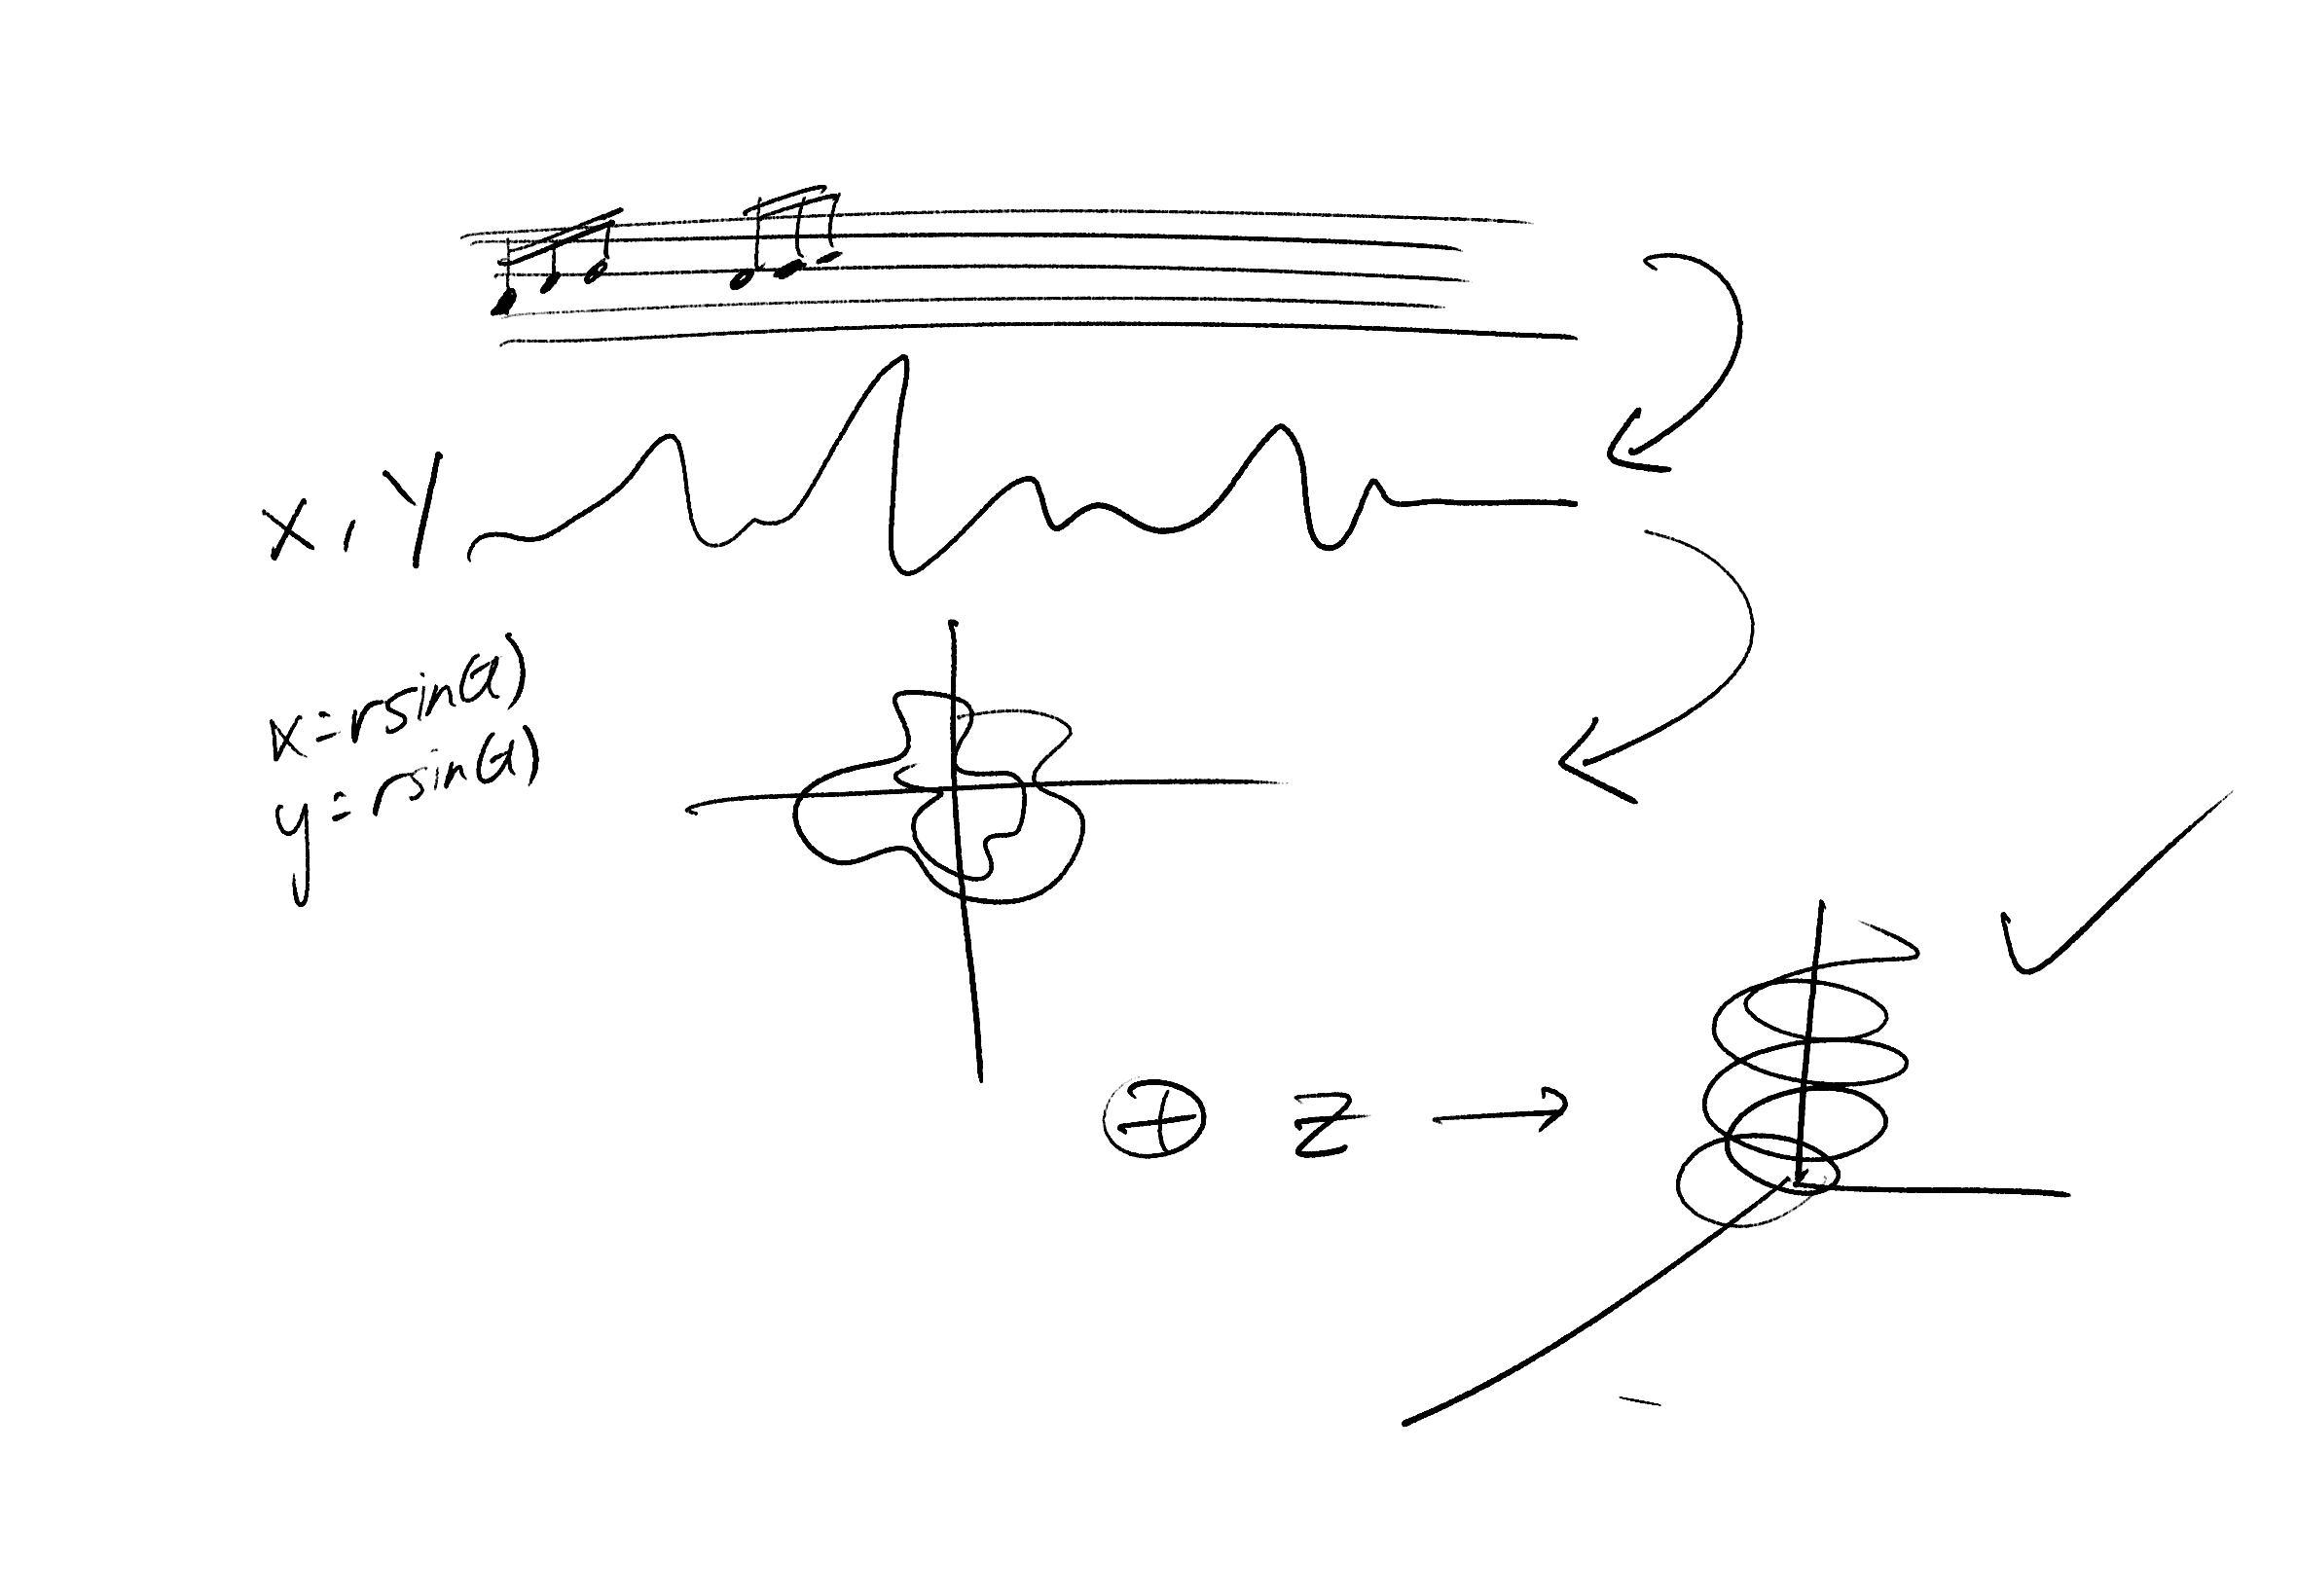 X, Y
x=rsin(a)
y=rsin(a)
⊕ z →